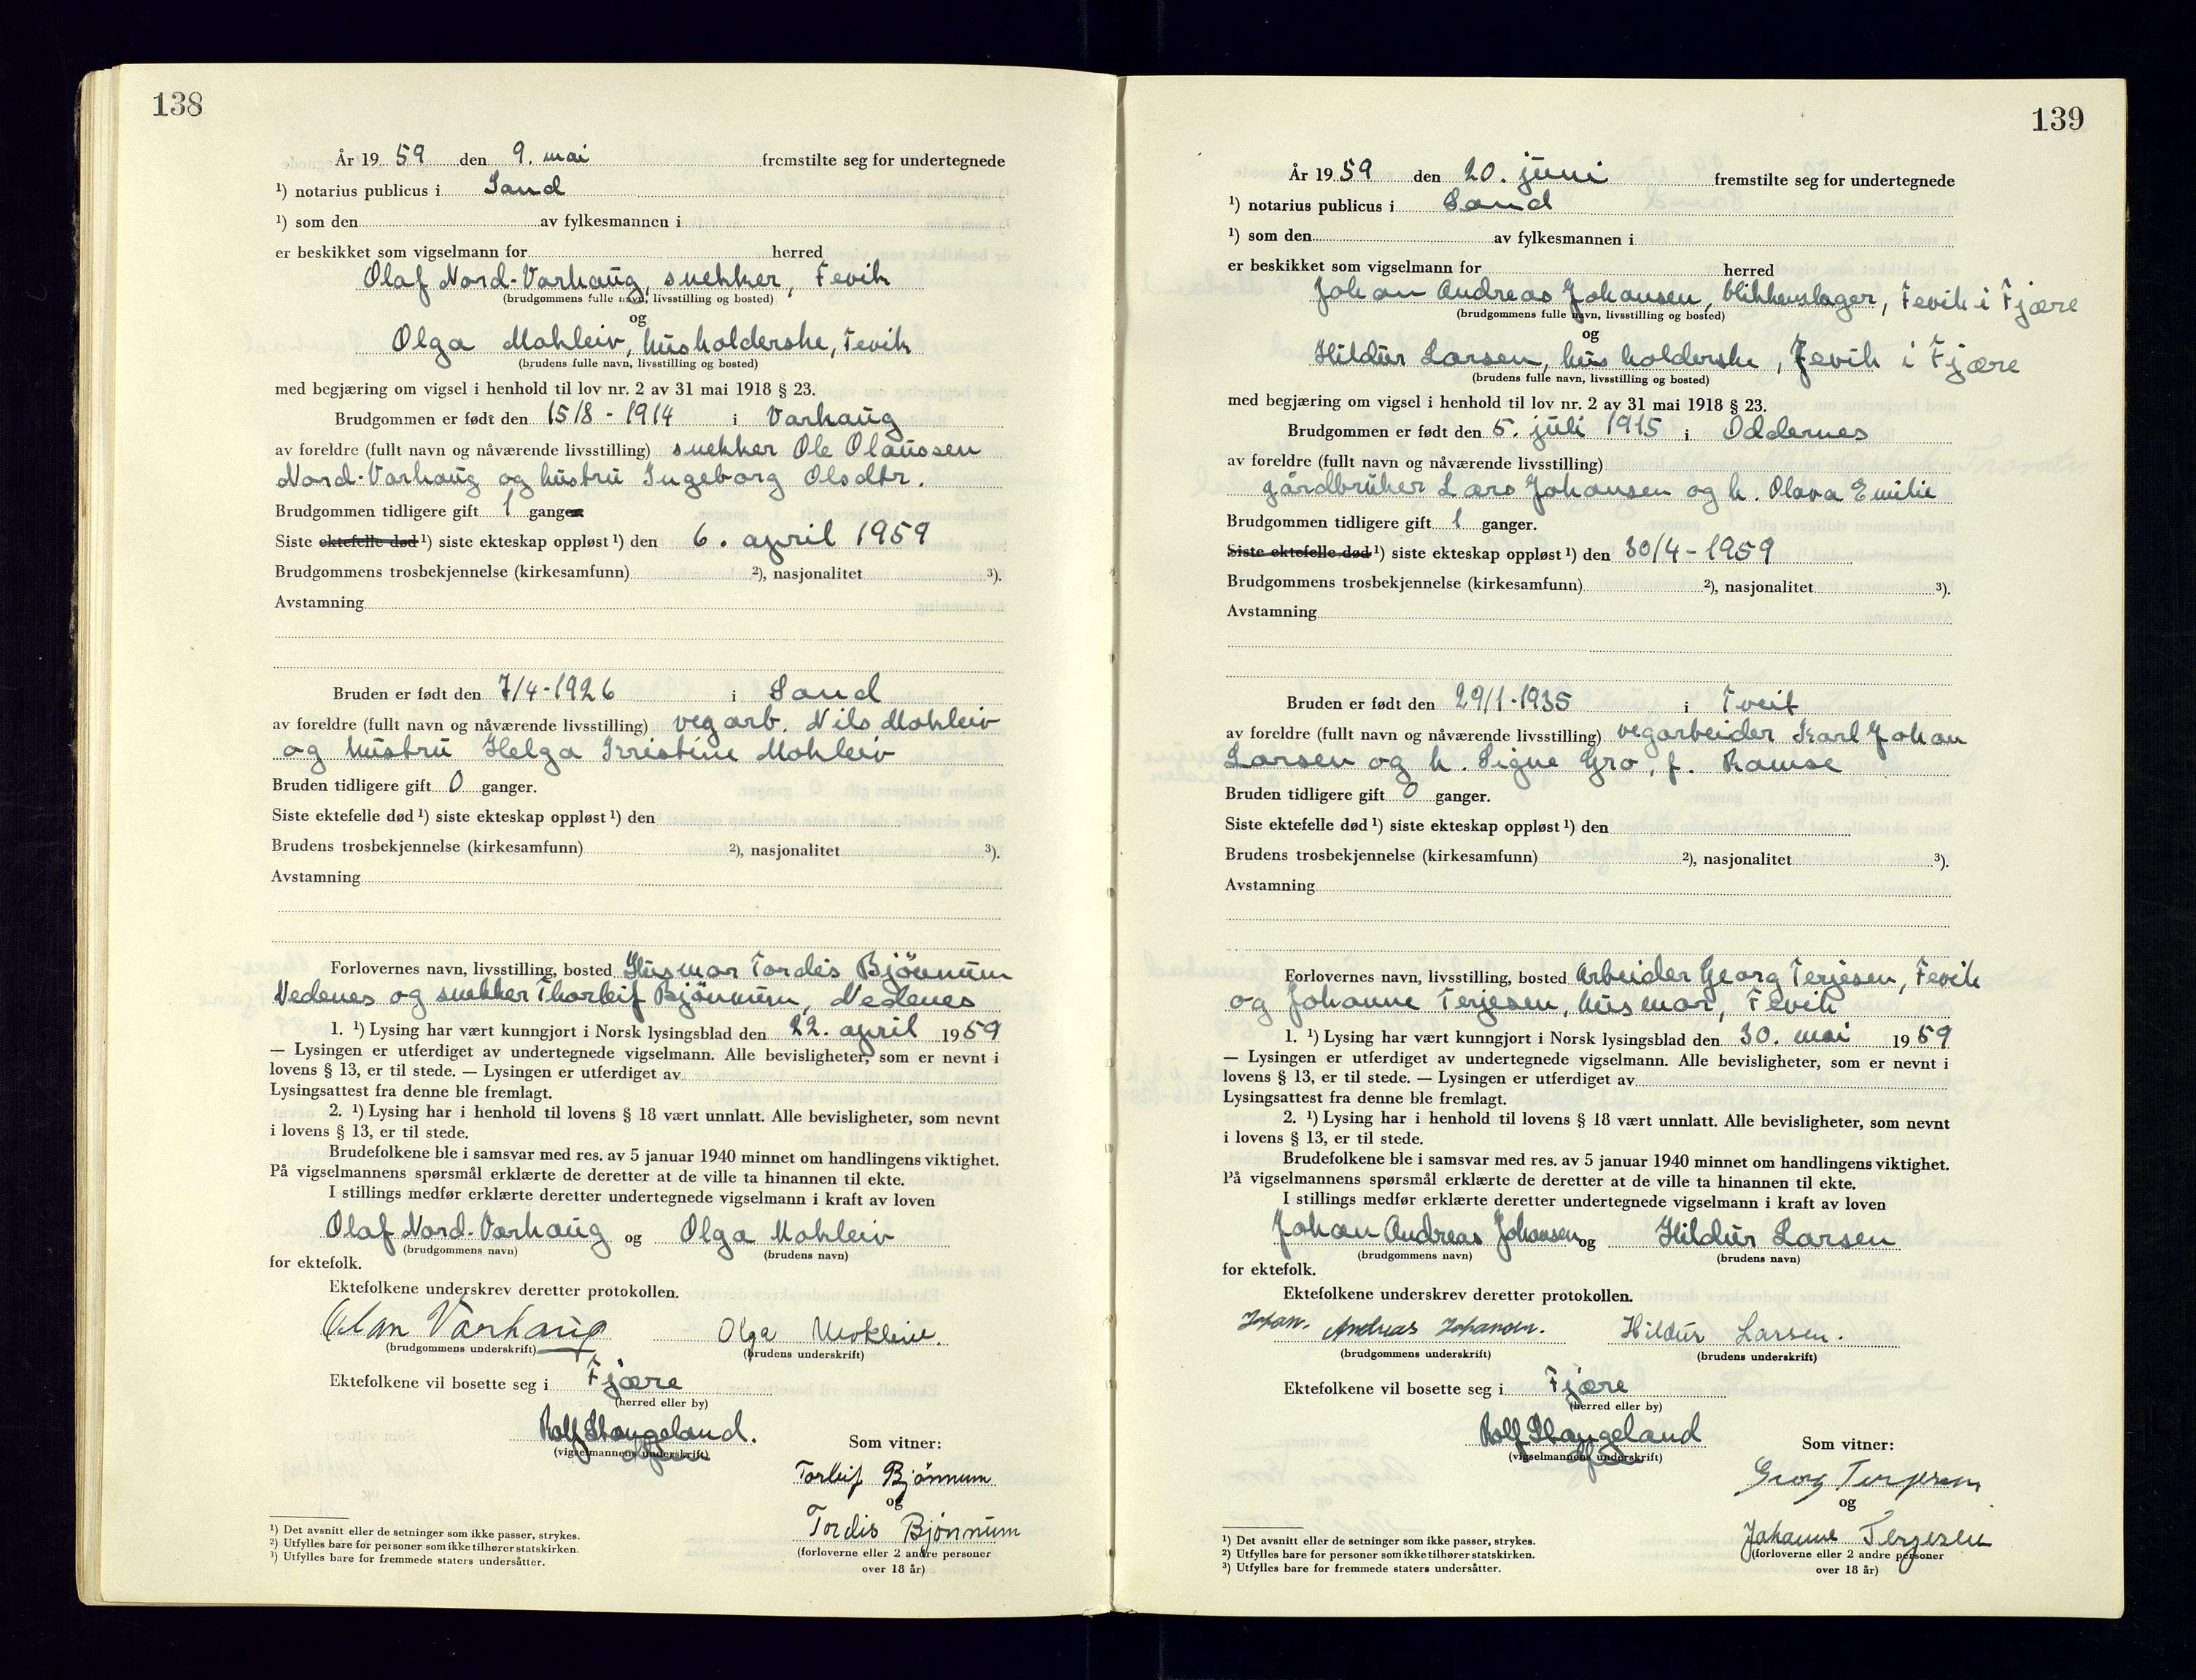 138
År 19 59 den 9. mai fremstilte seg for undertegnede
¹) notarius publicus i Sand
¹) som den av fylkesmannen i
er beskikket som vigselmann for herred
Olaf Nord-Varhaug, snekker, Fevik
(brudgommens fulle navn, livsstilling og bosted)
og
Olga Mohleiv, husholderske, Fevik
(brudens fulle navn, livsstilling og bosted)
med begjæring om vigsel i henhold til lov nr. 2 av 31 mai 1918 § 23.
Brudgommen er født den 15/8 - 1914 i Varhaug
av foreldre (fullt navn og nåværende livsstilling) snekker Ole Olaussen
Nord-Varhaug og hustru Ingeborg Olsdtr.
Brudgommen tidligere gift 1 ganger
Siste ektefelle død ¹) siste ekteskap oppløst ¹) den 6. april 1959
Brudgommens trosbekjennelse (kirkesamfunn) ²), nasjonalitet ³).
Avstamning
Bruden er født den 7/4-1926 i Sand
av foreldre (fullt navn og nåværende livsstilling) vegarb. Nils Mohleiv
og hustru Helga Kristine Mohleiv
Bruden tidligere gift 0 ganger.
Siste ektefelle død ¹) siste ekteskap oppløst ¹) den
Brudens trosbekjennelse (kirkesamfunn) ²), nasjonalitet ³).
Avstamning
Forlovernes navn, livsstilling, bosted Husmor Tordis Bjönnum
Nedenes og snekker Thorleif Bjönnum, Nedenes
1. ¹) Lysing har vært kunngjort i Norsk lysingsblad den 22. april 1959
— Lysingen er utferdiget av undertegnede vigselmann. Alle bevisligheter, som er nevnt i
lovens § 13, er til stede. — Lysingen er utferdiget av
Lysingsattest fra denne ble fremlagt.
2. ¹) Lysing har i henhold til lovens § 18 vært unnlatt. Alle bevisligheter, som nevnt
i lovens § 13, er til stede.
Brudefolkene ble i samsvar med res. av 5 januar 1940 minnet om handlingens viktighet.
På vigselmannens spørsmål erklærte de deretter at de ville ta hinannen til ekte.
I stillings medfør erklærte deretter undertegnede vigselmann i kraft av loven
Olaf Nord-Varhaug og Olga Mohleiv
(brudgommens navn) (brudens navn)
for ektefolk.
Ektefolkene underskrev deretter protokollen.
Varhaug Olga Mokleiv.
(brudgommens underskrift) (brudens underskrift)
Ektefolkene vil bosette seg i Fjære
(herred eller by)
Rolf Stangeland.
(vigselmannens underskrift)
Som vitner:
Torleif Bjönnum
og
Tordis Bjönnum
(forloverne eller 2 andre personer
over 18 år)
¹) Det avsnitt eller de setninger som ikke passer, strykes.
²) Utfylles bare for personer som ikke tilhører statskirken.
³) Utfylles bare for fremmede staters undersåtter.
139
År 19 59 den 20. juni fremstilte seg for undertegnede
¹) notarius publicus i Sand
¹) som den av fylkesmannen i
er beskikket som vigselmann for herred
Johan Andreas Johansen, blikkenslager, Fevik i Fjære
(brudgommens fulle navn, livsstilling og bosted)
og
Hildur Larsen, husholderske, Fevik i Fjære
(brudens fulle navn, livsstilling og bosted)
med begjæring om vigsel i henhold til lov nr. 2 av 31 mai 1918 § 23.
Brudgommen er født den 5. juli 1915 i Oddernes
av foreldre (fullt navn og nåværende livsstilling)
gårdbruker Lars Johansen og h. Olava Emilie
Brudgommen tidligere gift 1 ganger.
Siste ektefelle død ¹) siste ekteskap oppløst ¹) den 30/4 - 1959
Brudgommens trosbekjennelse (kirkesamfunn) ²), nasjonalitet ³).
Avstamning
Bruden er født den 29/1-1935 i Tveit
av foreldre (fullt navn og nåværende livsstilling) vegarbeider Karl Johan
Larsen og h. Signe Gro, f. Ramse
Bruden tidligere gift 0 ganger.
Siste ektefelle død ¹) siste ekteskap oppløst ¹) den
Brudens trosbekjennelse (kirkesamfunn) ²), nasjonalitet ³).
Avstamning
Forlovernes navn, livsstilling, bosted Arbeider Georg Terjesen, Fevik
og Johanne Terjesen, husmor, Fevik
1. ¹) Lysing har vært kunngjort i Norsk lysingsblad den 30. mai 1959
— Lysingen er utferdiget av undertegnede vigselmann. Alle bevisligheter, som er nevnt i
lovens § 13, er til stede. — Lysingen er utferdiget av
Lysingsattest fra denne ble fremlagt.
2. ¹) Lysing har i henhold til lovens § 18 vært unnlatt. Alle bevisligheter, som nevnt
i lovens § 13, er til stede.
Brudefolkene ble i samsvar med res. av 5 januar 1940 minnet om handlingens viktighet.
På vigselmannens spørsmål erklærte de deretter at de ville ta hinannen til ekte.
I stillings medfør erklærte deretter undertegnede vigselmann i kraft av loven
Johan Andreas Johansen og Hildur Larsen
(brudgommens navn) (brudens navn)
for ektefolk.
Ektefolkene underskrev deretter protokollen.
Johan. Andreas Johansen. Hildur Larsen.
(brudgommens underskrift) (brudens underskrift)
Ektefolkene vil bosette seg i Fjære
(herred eller by)
Rolf Stangeland
(vigselmannens underskrift)
Som vitner:
Georg Terjesen
og
Johanne Terjesen
(forloverne eller 2 andre personer
over 18 år)
¹) Det avsnitt eller de setninger som ikke passer, strykes.
²) Utfylles bare for personer som ikke tilhører statskirken.
³) Utfylles bare for fremmede staters undersåtter.